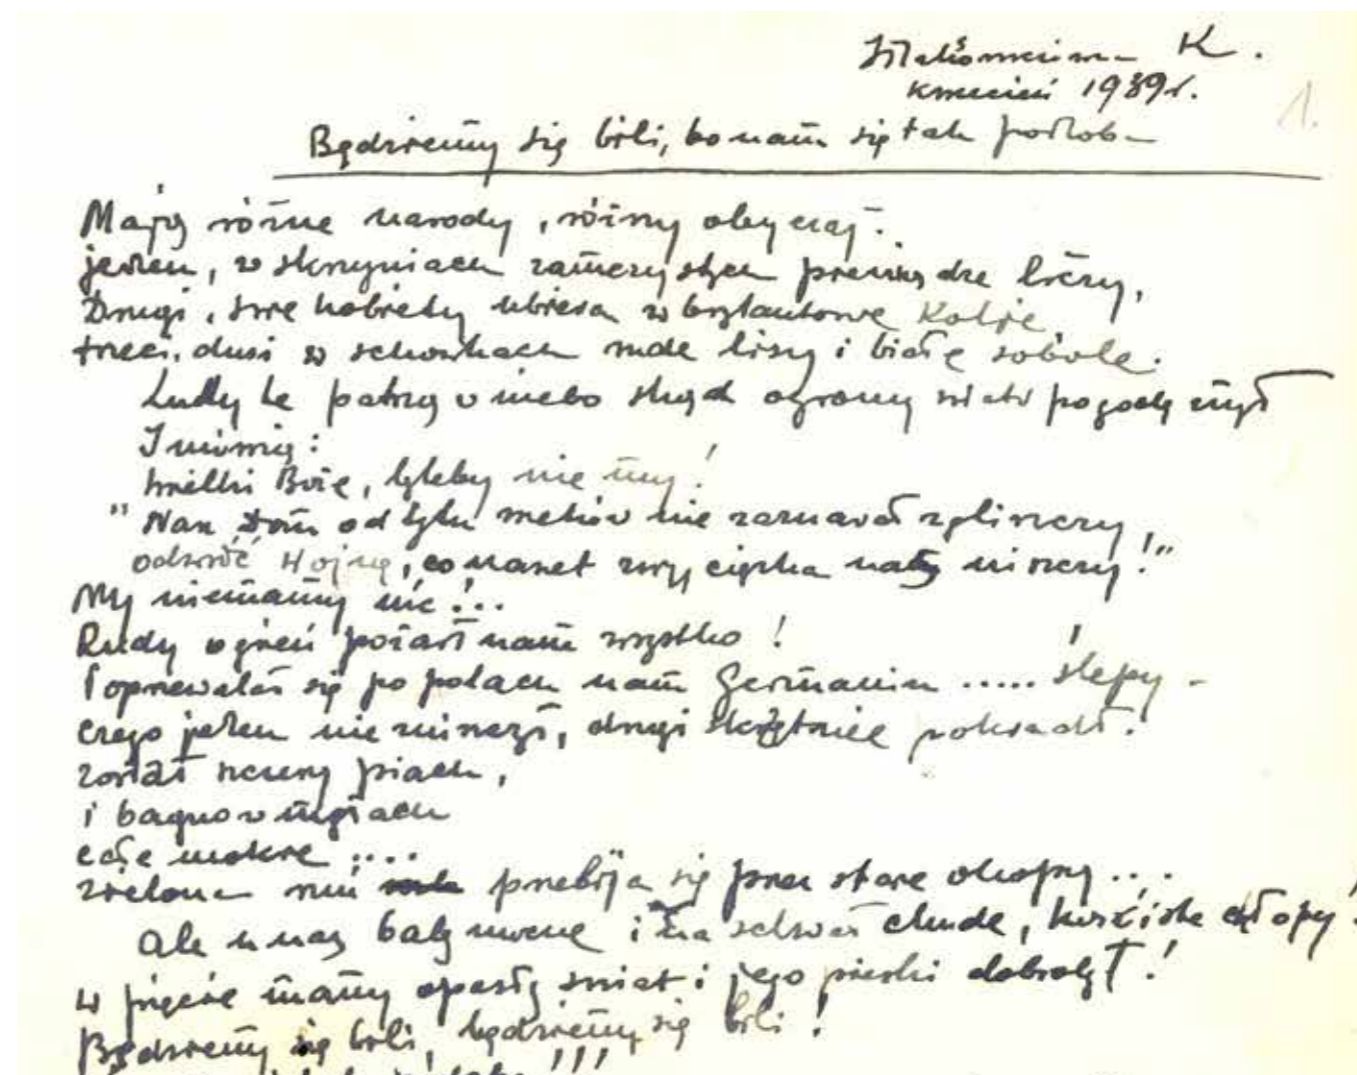 K.
kwiecień 1939 r.
1.
Będziemy się bili, bo nam się tak podoba
Mają różne narody, różny obyczaj.
jeden, w skrzyniach zamczystych pieniądze liczy,
Drugi, swe kobiety ubiera w brylantowe Kolje,
trzeci, dusi w schowkach rude lisy i białe sobole.
Ludy te patrzą w niebo skąd ogromy pogody
I mówią:
wielki Boże, byleby nie my!
" Nasz Dom od tylu wieków nie zaznawał zgliszczy,
odwróć Wojnę, co nawet zwycięzka nas niszczy!"
My niemamy nic!...
Rudy ogień pożarł nam wszystko!
I oprzewalał się po polach nam Germanin ..... ślepy -
czego jeden nie zniszczył, drugi skrzętnie pokradł!
został szczery piach,
i bagno w mgłach
całe mokre ....
zielona ruń przebija się przez stare okopy ....
Ale u nas bały i na schwał chude, kościste chłopy!
w pięście mamy opasły świat i jego pieski dobrobyt!
Będziemy się bili, będziemy się bili!
!!!